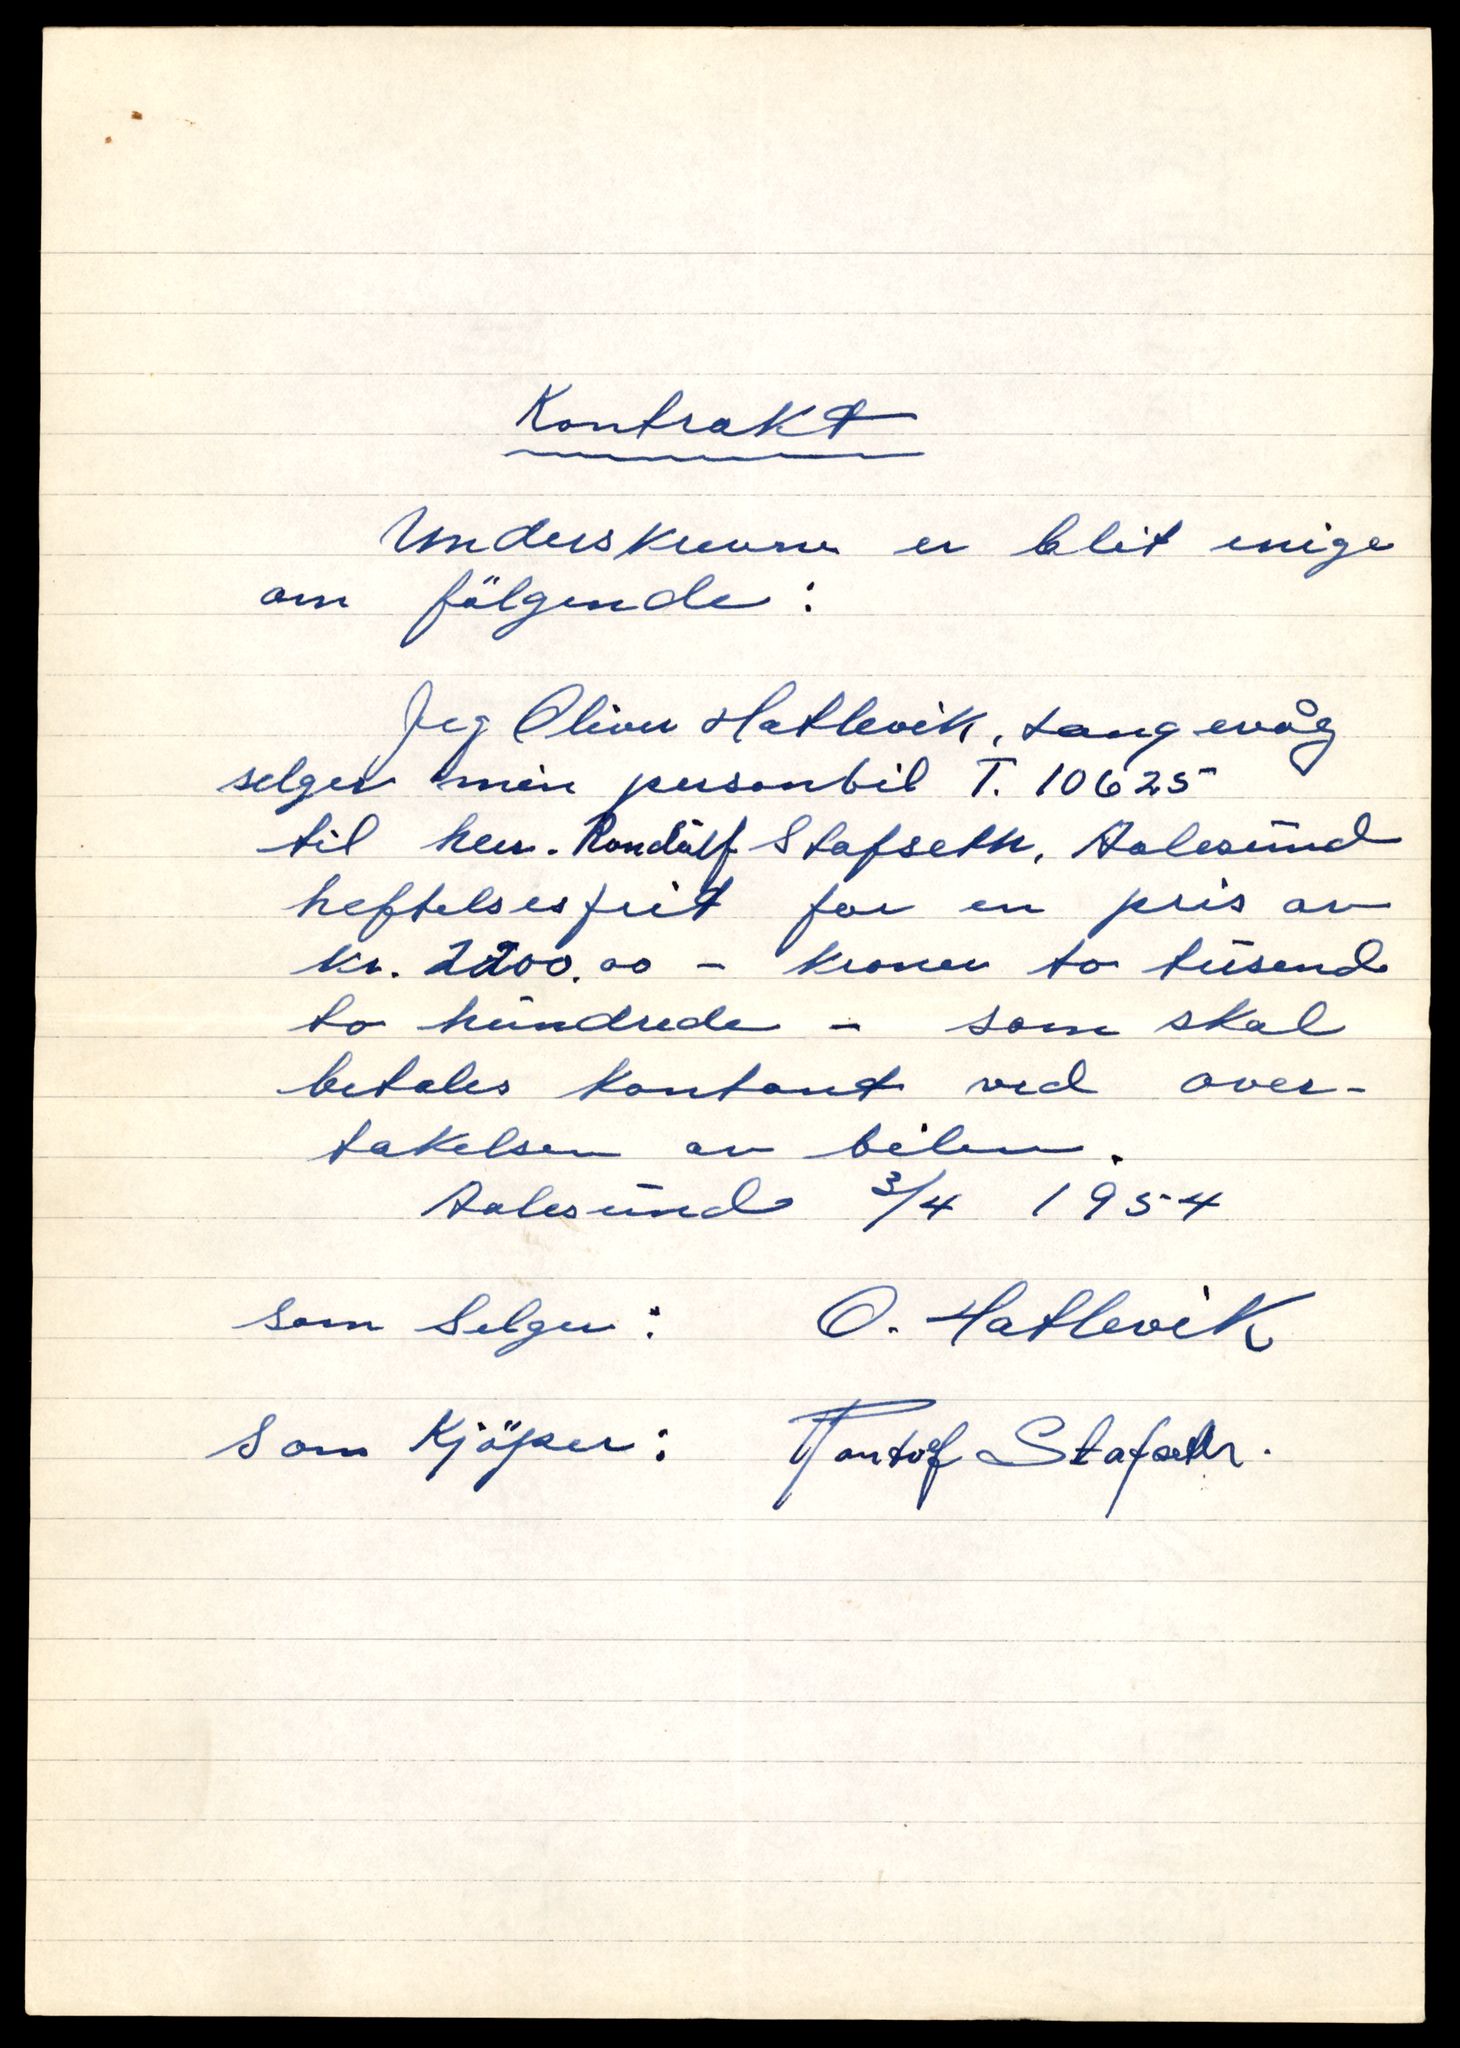 Kontrakt
Underskrevne er blit enige
om fölgende :
Jeg Oliver Hatlevik, Langevåg
selger min personbil T. 10625
til herr. Rondulf Stafseth, Aalesund
heftelsesfrit for en pris av
kr. 2200.00 - kroner to tusend
to hundrede - som skal
betales kontant ved over-
takelsen av bilen.
Aalesund 3/4 1954
som Selger : O. Hatlevik
som Kjöper : Stafseth.